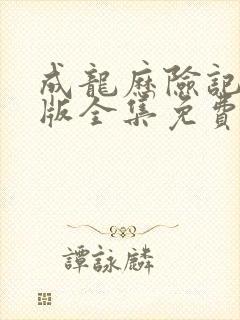 成龍歷險記
版全集免費
譚詠麟